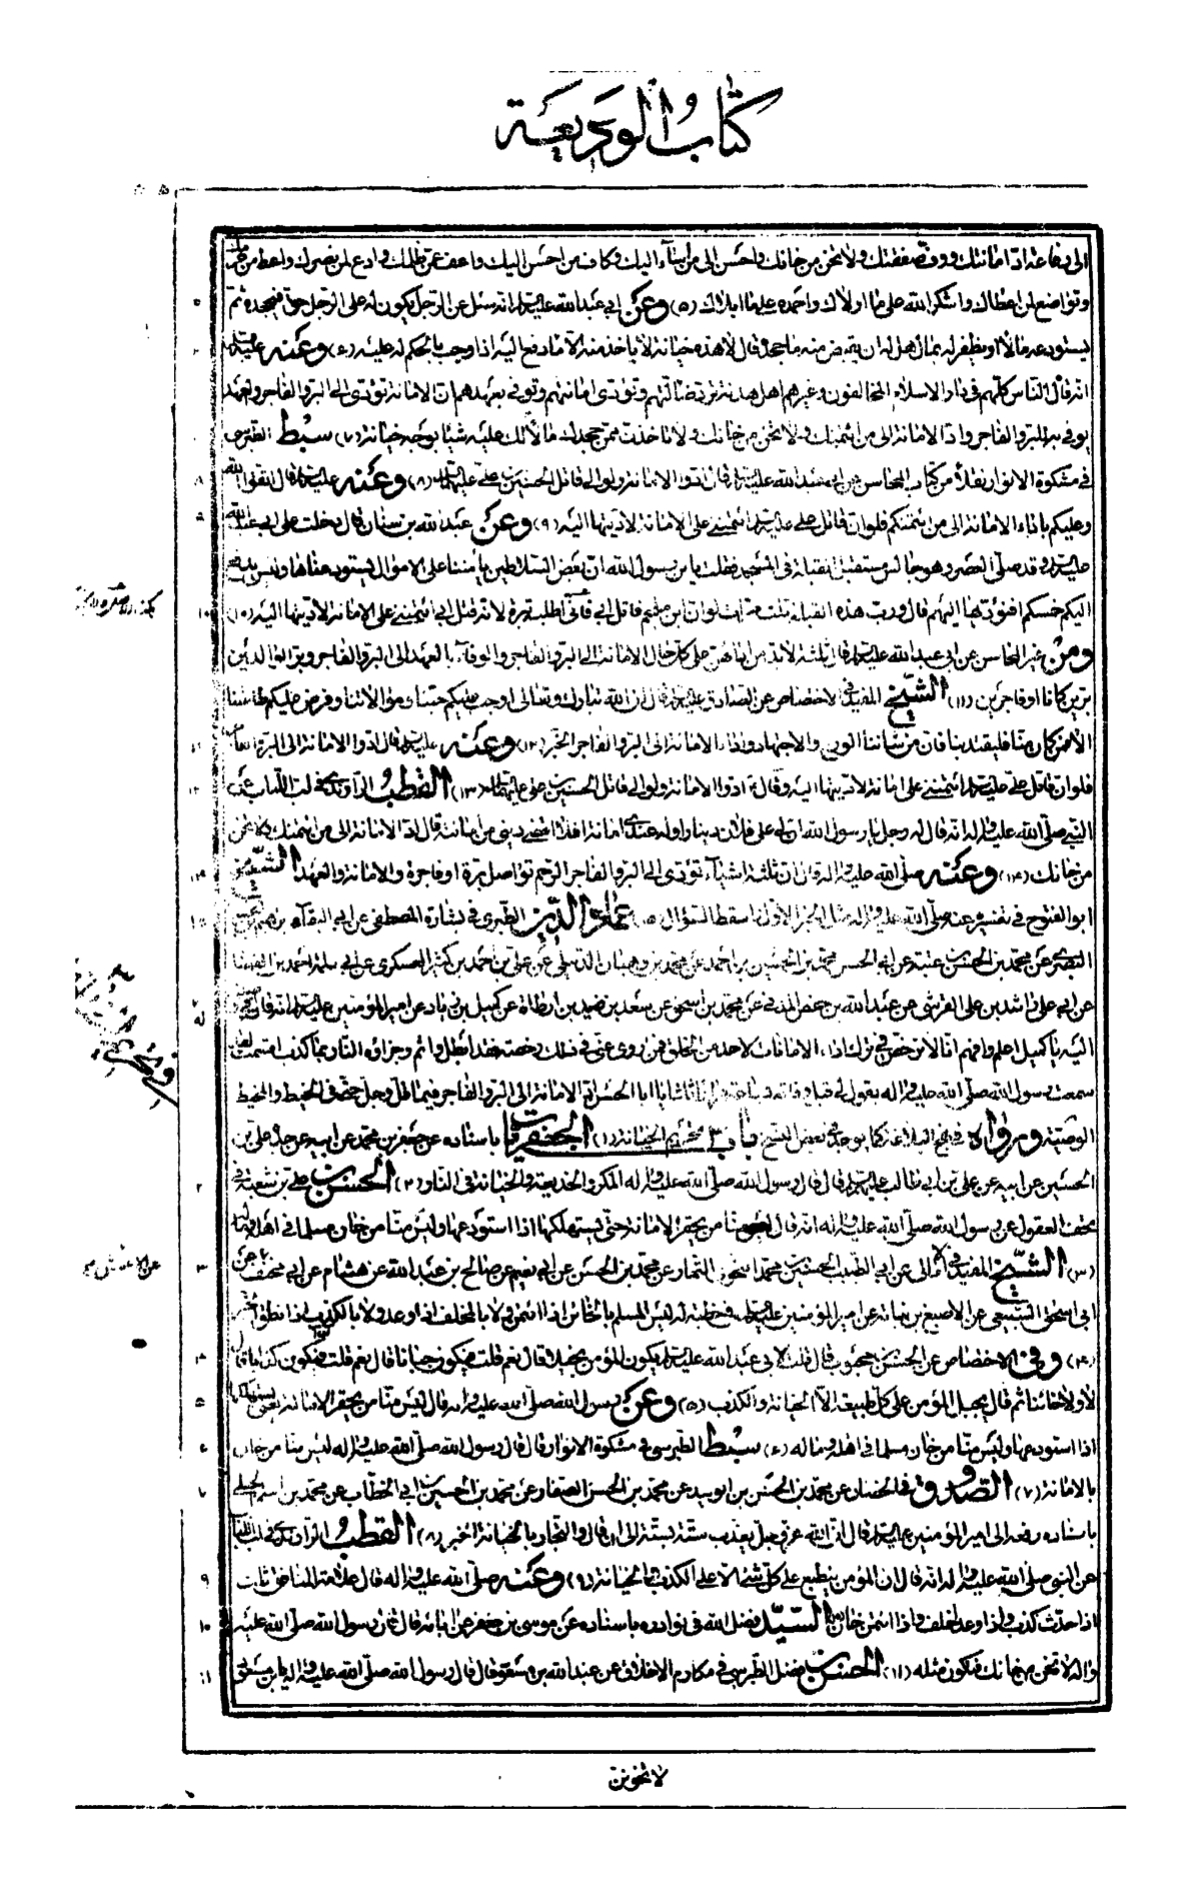 كتاب الوديعة
۵۰۵
الى رفاعة اد امانتك ووف صفقتك ولا تخن من خانك واحسن الى من اساء اليك وكاف من احسن اليك واعف عمن ظلمك وادع لمن نصرك واعط من حرمك
وتواضع لمن اعطاك واشكر الله على ما اولاك واحمده على ما ابلاك (۵) وعن ابي عبدالله عليه السلام انه سئل عن الرجل يكون له على الرجل حق فيجحده ثم
يستودعه مالا او يظفر له بمال هل له ان يقبض منه ما جحد قال لا هذه خيانة لا ياخذ منه الا ما دفع اليه اذا وجب بالحكم له عليه (۶) وعنه عليه السلام
انه قال الناس كلهم في دار الاسلام المخالفون وغيرهم اهل هدنة ترد ضالتهم وتؤدى امانتهم ويوفى بعهدهم ان الامانة تؤدى الى البر والفاجر والعهد
يوفى به للبر والفاجر واد الامانة الى من ائتمنك ولا تخن من خانك ولا تاخذن ممن جحدك مالا لك عليه شيئا بوجه خيانة (۷) سبط الطبرسي
في مشكوة الانوار نقلا من كتاب المحاسن عن ابي عبدالله عليه السلام قال ادوا الامانة ولو الى قاتل الحسين بن علي عليهما السلام (۸) وعنه عليه السلام قال اتقوا الله
وعليكم باداء الامانة الى من ائتمنكم فلو ان قاتل علي عليه السلام ائتمنني على الامانة لاديتها اليه (۹) وعن عبدالله بن سنان قال دخلت على ابي عبدالله
عليه السلام وقد صلى العصر وهو جالس مستقبل القبلة في المسجد فقلت يا بن رسول الله ان بعض السلاطين يامننا على الاموال يستودعناها وليس يدفع
اليكم خمسكم افنؤديها اليهم قال ورب هذه القبلة ثلث مرات لو ان ابن ملجم قاتل ابي فاني اطلبه بثره لانه قتل ابي ائتمنني على الامانة لاديتها اليه (۱۰)
ومن غير المحاسن عن ابي عبدالله عليه السلام قال ثلثة لا بد من ادائهن على كل حال الامانة الى البر والفاجر والوفاء بالعهد الى البر والفاجر وبر الوالدين
برين كانا او فاجرين (۱۱) الشيخ المفيد في الاختصاص عن الصادق عليه السلام قال ان الله تبارك وتعالى اوجب عليكم حبنا وموالاتنا وفرض عليكم طاعتنا
الا فمن كان منا فليقتد بنا فان من شاننا الورع والاجتهاد واداء الامانة الى البر والفاجر الخبر (۱۲) وعنه عليه السلام قال ادوا الامانة الى البر والفاجر
فلو ان قاتل علي عليه السلام ائتمنني على امانة لاديتها اليه وقال ادوا الامانة ولو الى قاتل الحسين بن علي عليهما السلام (۱۳) القطب الراوندي في لب اللباب عن
النبي صلى الله عليه واله انه قال له رجل يا رسول الله ان لي على فلان دينارا وله عندي امانة افلا اقضي ديني من امانته قال اد الامانة الى من ائتمنك ولا تخن
من خانك (۱۴) وعنه صلى الله عليه واله قال ان ثلثة اشياء تؤدى الى البر والفاجر الرحم تواصل برة او فاجرة والامانة والعهد الشيخ
ابو الفتوح في تفسيره عنه صلى الله عليه واله مثل الخبر الاول باسقاط السؤال (۱۵) عماد الدين الطبري في بشارة المصطفى عن ابي البقاء ابراهيم بن
البصري عن محمد بن الحسن بن عتبة عن ابي الحسن محمد بن الحسين بن احمد عن محمد بن وهبان الدبيلي عن علي بن احمد بن كثير العسكري عن ابي سلمة احمد بن
عن ابي علي راشد بن علي القرشي عن عبدالله بن حفص المدني عن محمد بن اسحق عن سعد بن زيد بن ارطاة عن كميل بن زياد عن امير المؤمنين عليه السلام انه قال
اليه يا كميل اعلم وافهم انا لا نرخص في ترك اداء الامانات لاحد من الخلق فمن روى عني في ذلك رخصة فقد ابطل واثم وجزاؤه النار بما كذب اقسم لقد
سمعت رسول الله صلى الله عليه واله يقول لي قبل وفاته بساعة مرارا ثلثا يا ابا الحسن اد الامانة الى البر والفاجر فيما قل وجل حتى في الخيط والمخيط
الوصية ورواه في نهج البلاغة كما يوجد في بعض النسخ باب ۳ تحريم الخيانة (۱) الجعفريات باسناده عن جعفر بن محمد عن ابيه عن جده علي بن
الحسين عن ابيه عن علي بن ابي طالب عليه السلام قال قال رسول الله صلى الله عليه واله المكر والخديعة والخيانة في النار (۲) الحسن بن علي بن شعبة في
تحف العقول عن رسول الله صلى الله عليه واله انه قال ليس منا من يحقر الامانة حتى يستهلكها اذا استودعها وليس منا من خان مسلما في اهله وماله
(۳) الشيخ المفيد في الامالي عن ابي الطيب الحسين بن محمد النحوي التمار عن محمد بن الحسن عن ابي نعيم عن صالح بن عبدالله عن هشام عن ابي مخنف عن
ابي اسحق السبيعي عن الاصبغ بن نباتة عن امير المؤمنين عليه السلام في خطبة له ليس المسلم بالخائن اذا ائتمن ولا بالمخلف اذا وعد ولا بالكذوب اذا نطق الخبر
(۴) وفي الاختصاص عن الحسن بن محبوب قال قلت لابي عبدالله عليه السلام يكون المؤمن بخيلا قال نعم قلت فيكون جبانا قال نعم قلت فيكون كذابا قال
لا ولا خائنا ثم قال يجبل المؤمن على كل طبيعة الا الخيانة والكذب (۵) وعن رسول الله صلى الله عليه واله قال ليس منا من يحقر الامانة يعني يستهلكها
اذا استودعها وليس منا من خان مسلما في اهله وماله (۶) سبط الطبرسي في مشكوة الانوار قال قال رسول الله صلى الله عليه واله ليس منا من خان
بالامانة (۷) الصدوق في الخصال عن محمد بن الحسن بن الوليد عن محمد بن الحسن الصفار عن محمد بن الحسين بن ابي الخطاب عن محمد بن اسلم الجبلي
باسناده رفعه الى امير المؤمنين عليه السلام قال ان الله عز وجل يعذب ستة بستة الى ان قال والتجار بالخيانة الخبر (۸) القطب الراوندي في لب اللباب
عن النبي صلى الله عليه واله انه قال ان المؤمن ينطبع على كل شيء الا على الكذب والخيانة (۹) وعنه صلى الله عليه واله قال علامة المنافق ثلث
اذا حدث كذب واذا وعد اخلف واذا ائتمن خان السيد فضل الله في نوادره باسناده عن موسى بن جعفر عن ابائه قال قال رسول الله صلى الله عليه
واله لا تخن من خانك فتكون مثله (۱۱) الحسن بن فضل الطبرسي في مكارم الاخلاق عن عبدالله بن مسعود قال قال رسول الله صلى الله عليه واله يا بن مسعود
لا تخونن